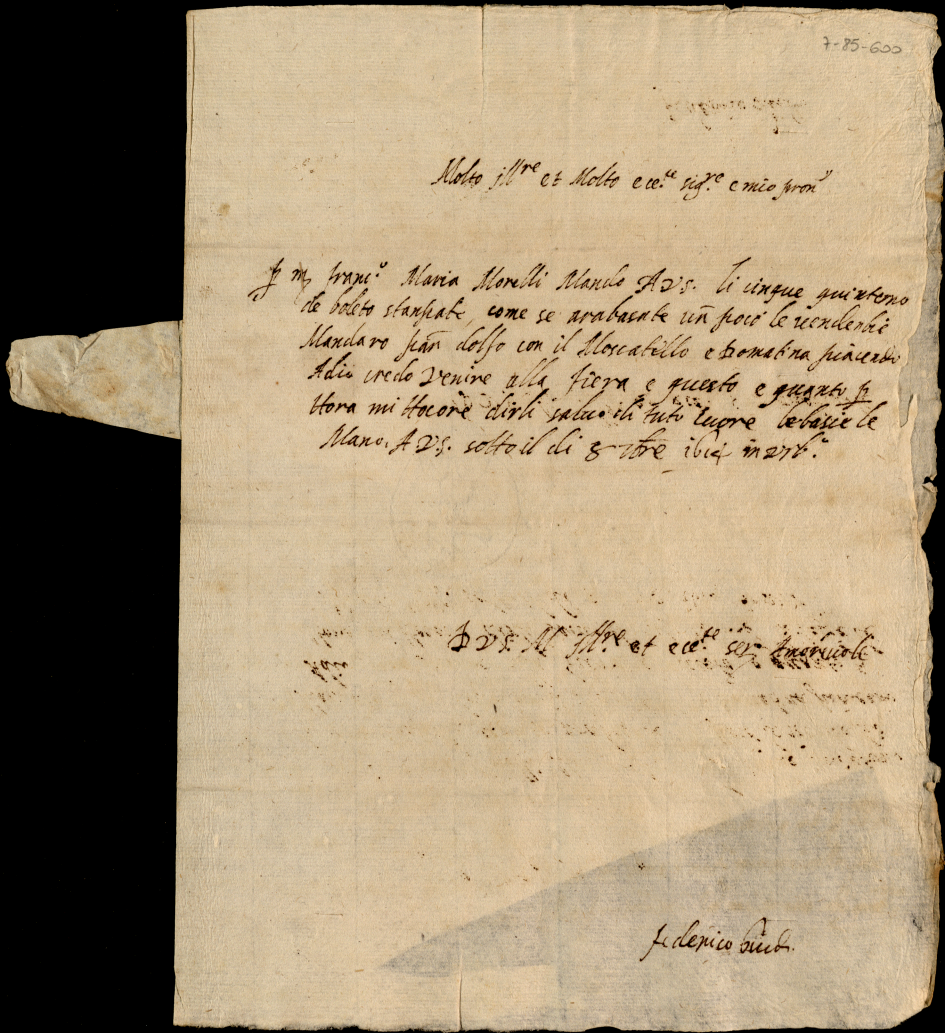 7-85-600
Molto Ill.re et Molto ecc.te sig.re e mio pron.
P m franc.o Maria Morelli Mando A V S. li cinque quinterno
de boleto stanpate, come se arabasate un poco le venderebe
Mandaro con il Moscatillo e piacendo
Adio credo venire alla fiera e questo e quanto p
Hora mi ttocore dirli salvo di tuto cuore le basie le
Mano, A V S. sotto il di 8 1614 in
D V S. M Ill.re et ecc.te ser. Amorevole
federico